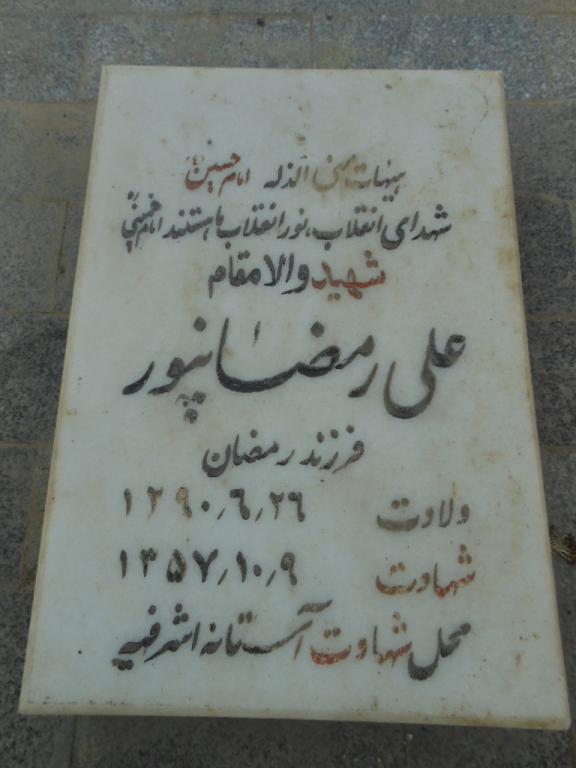 هیهات من الذله امام حسین (ع)
شهدای انقلاب، نور انقلاب ما هستند امام خمینی
شهید والامقام
علی رمضانپور
فرزند رمضان
ولادت ۱۲۹۰/۶/۲۶
شهادت ۱۳۵۷/۱۰/۹
محل شهادت آستانه اشرفیه